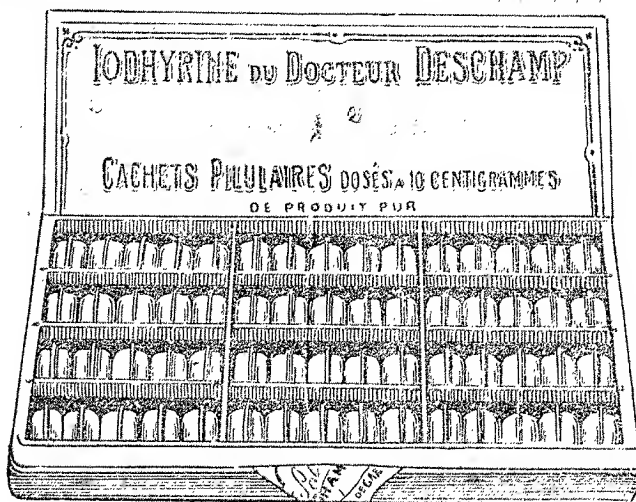 IODHYRINE DU DOCTEUR DESCHAMP
CACHETS PILULAIRES DOSÉS A 10 CENTIGRAMMES
DE PRODUIT PUR